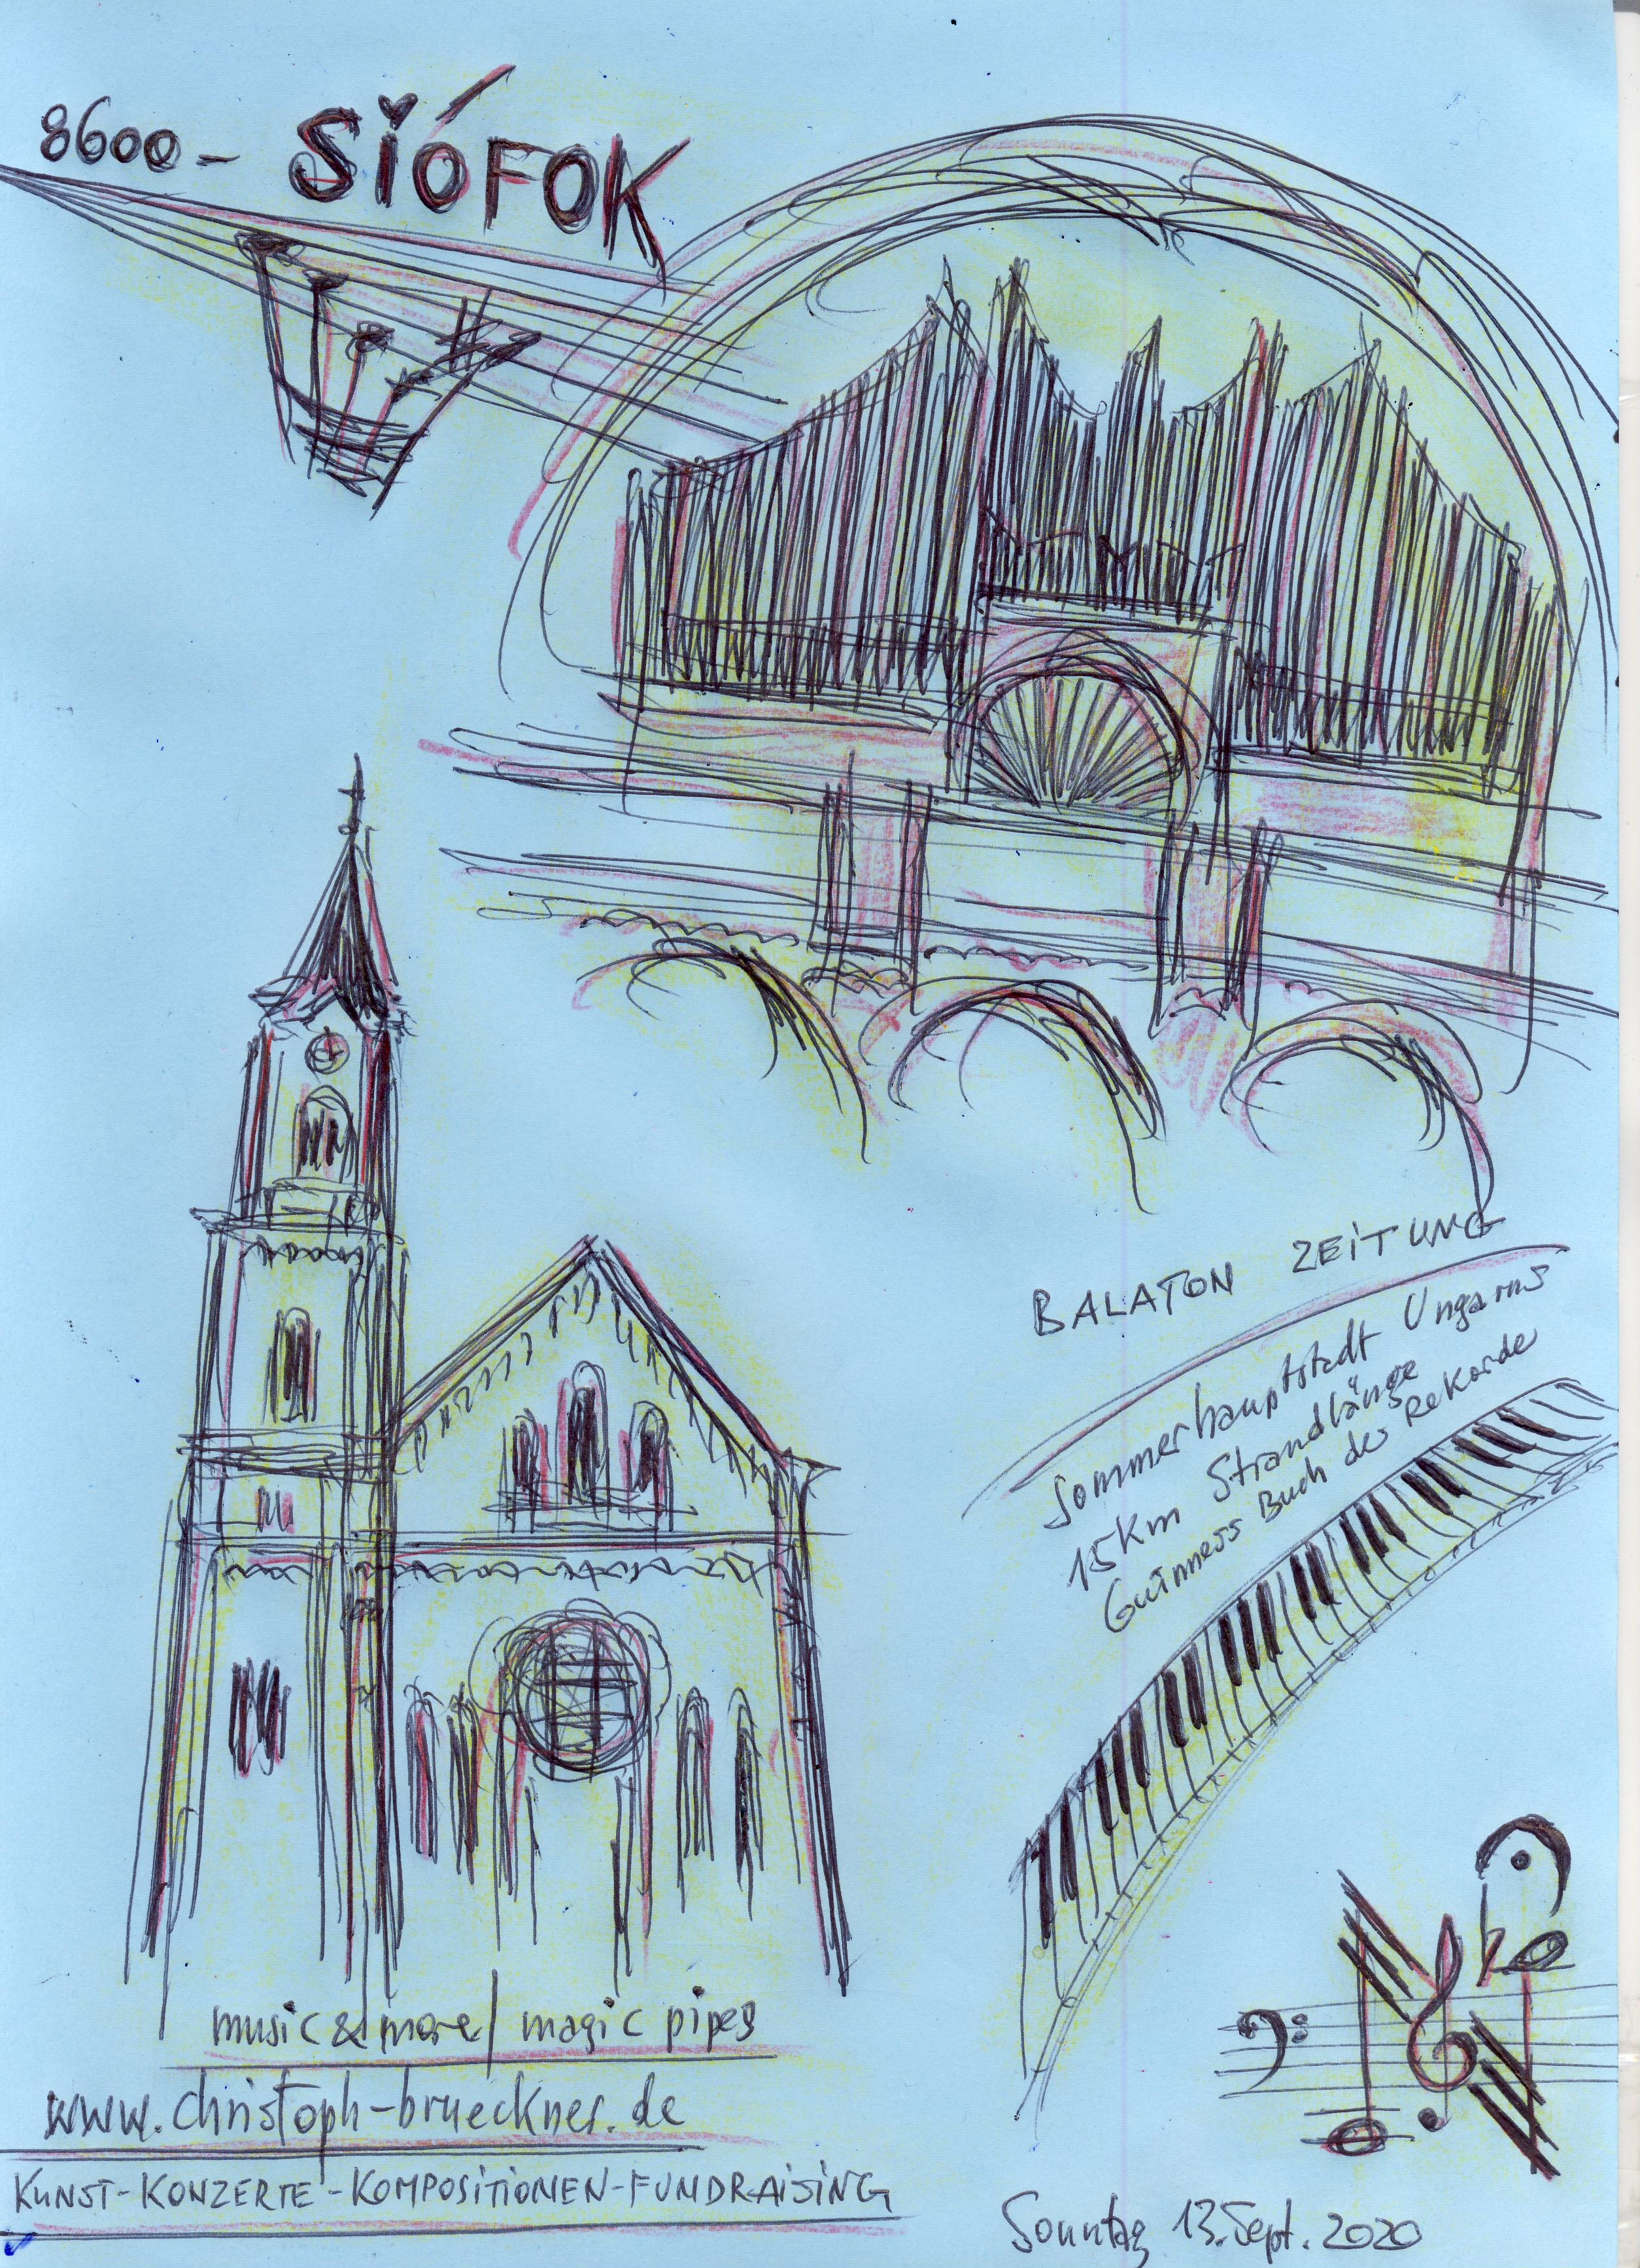 8600 - SIÓFOK
BALATON ZEITUNG
Sommerhauptstadt Ungarns
15Km Strandlänge
Guinness Buch der Rekorde
music & more / magic pipes
www.christoph-brueckner.de
KUNST-KONZERTE-KOMPOSITIONEN-FUNDRAISING
Sonntag 13. Sept. 2020